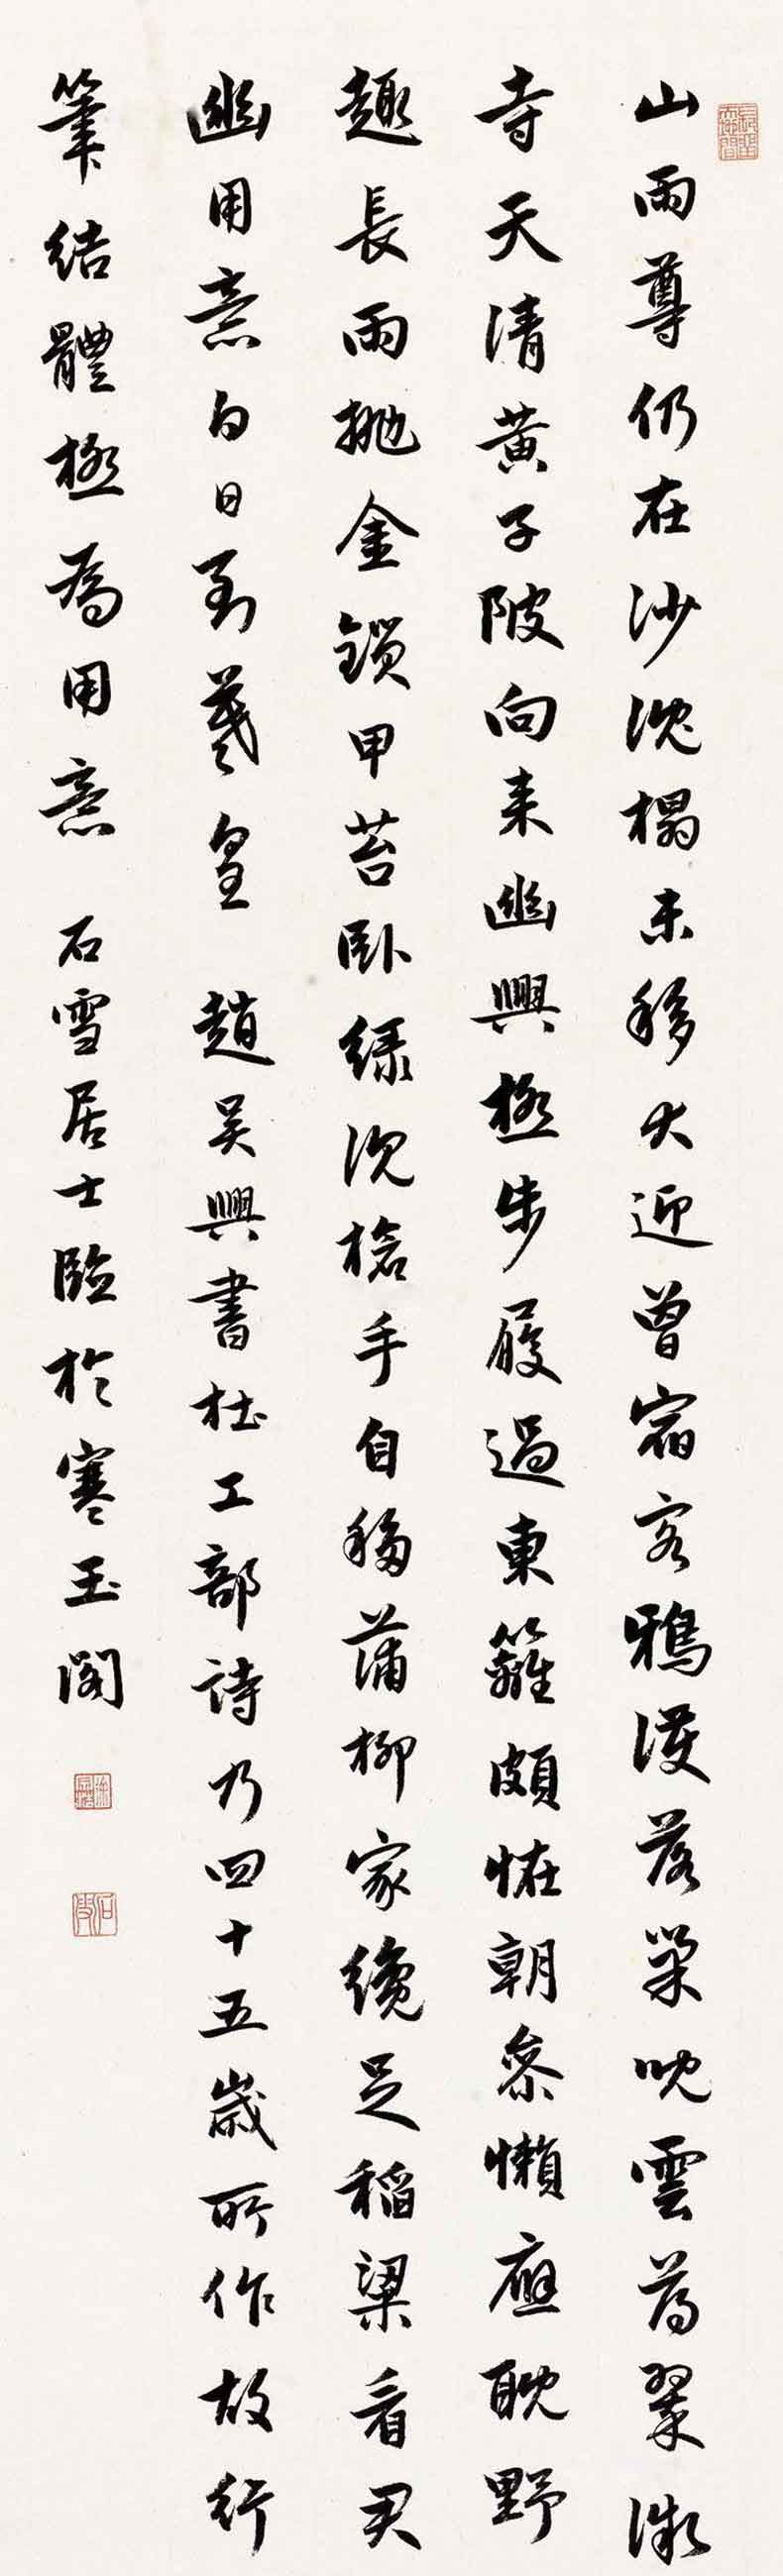 山雨尊仍在沙沈榻未移犬迎曾宿客鴉護落巢兒雲薄翠微
寺天清黃子陂向來幽興極步屣過東籬頗恠朝參懶應耽野
趣長雨拋金鎖甲苔臥綠沈槍手自移蒲柳家纔足稻粱看君
幽用意白日到羲皇 趙吳興書杜工部詩乃四十五歲所作故行
筆結體極為用意 石雪居士臨於寒玉閣